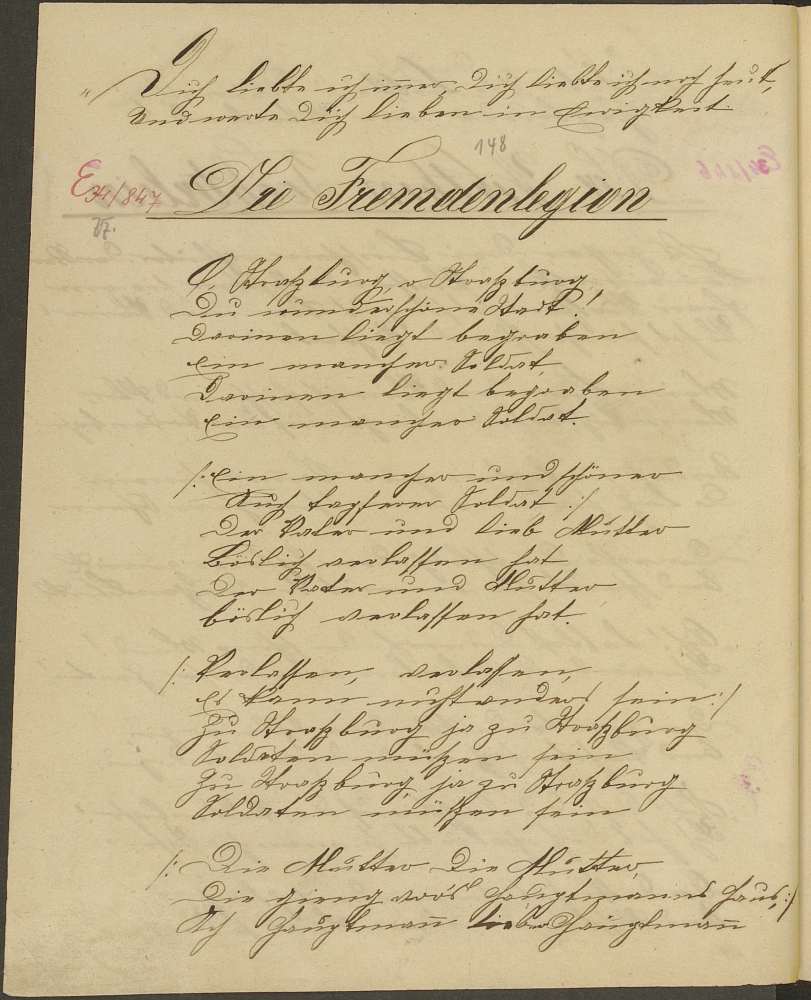 " Dich liebte ich immer, Dich liebe ich noch heut,
Und werde Dich lieben in Ewigkeit.
148
E 31/847
Die Fremdenlegion
O, Straßburg, o Straßburg
Du wunderschöne Stadt!
Darinen liegt begraben
Ein mancher Soldat,
Darinen liegt begraben
Ein mancher Soldat.
/: Ein mancher und schöner
Auch tapferer Soldat :/
Der Vater und lieb Mutter
Böslich verlassen hat
Der Vater und Mutter
böslich verlassen hat.
/: Verlassen, verlassen,
Es kann nicht anders sein :/
Zu Straßburg ja zu Straßburg
Soldaten müßen sein
Zu Straßburg, ja zu Straßburg
Soldaten müßen sein
/: Die Mutter die Mutter,
Die gieng vor's Hauptmanns Haus, :/
Ach Hauptmañ lieber Hauptmañ